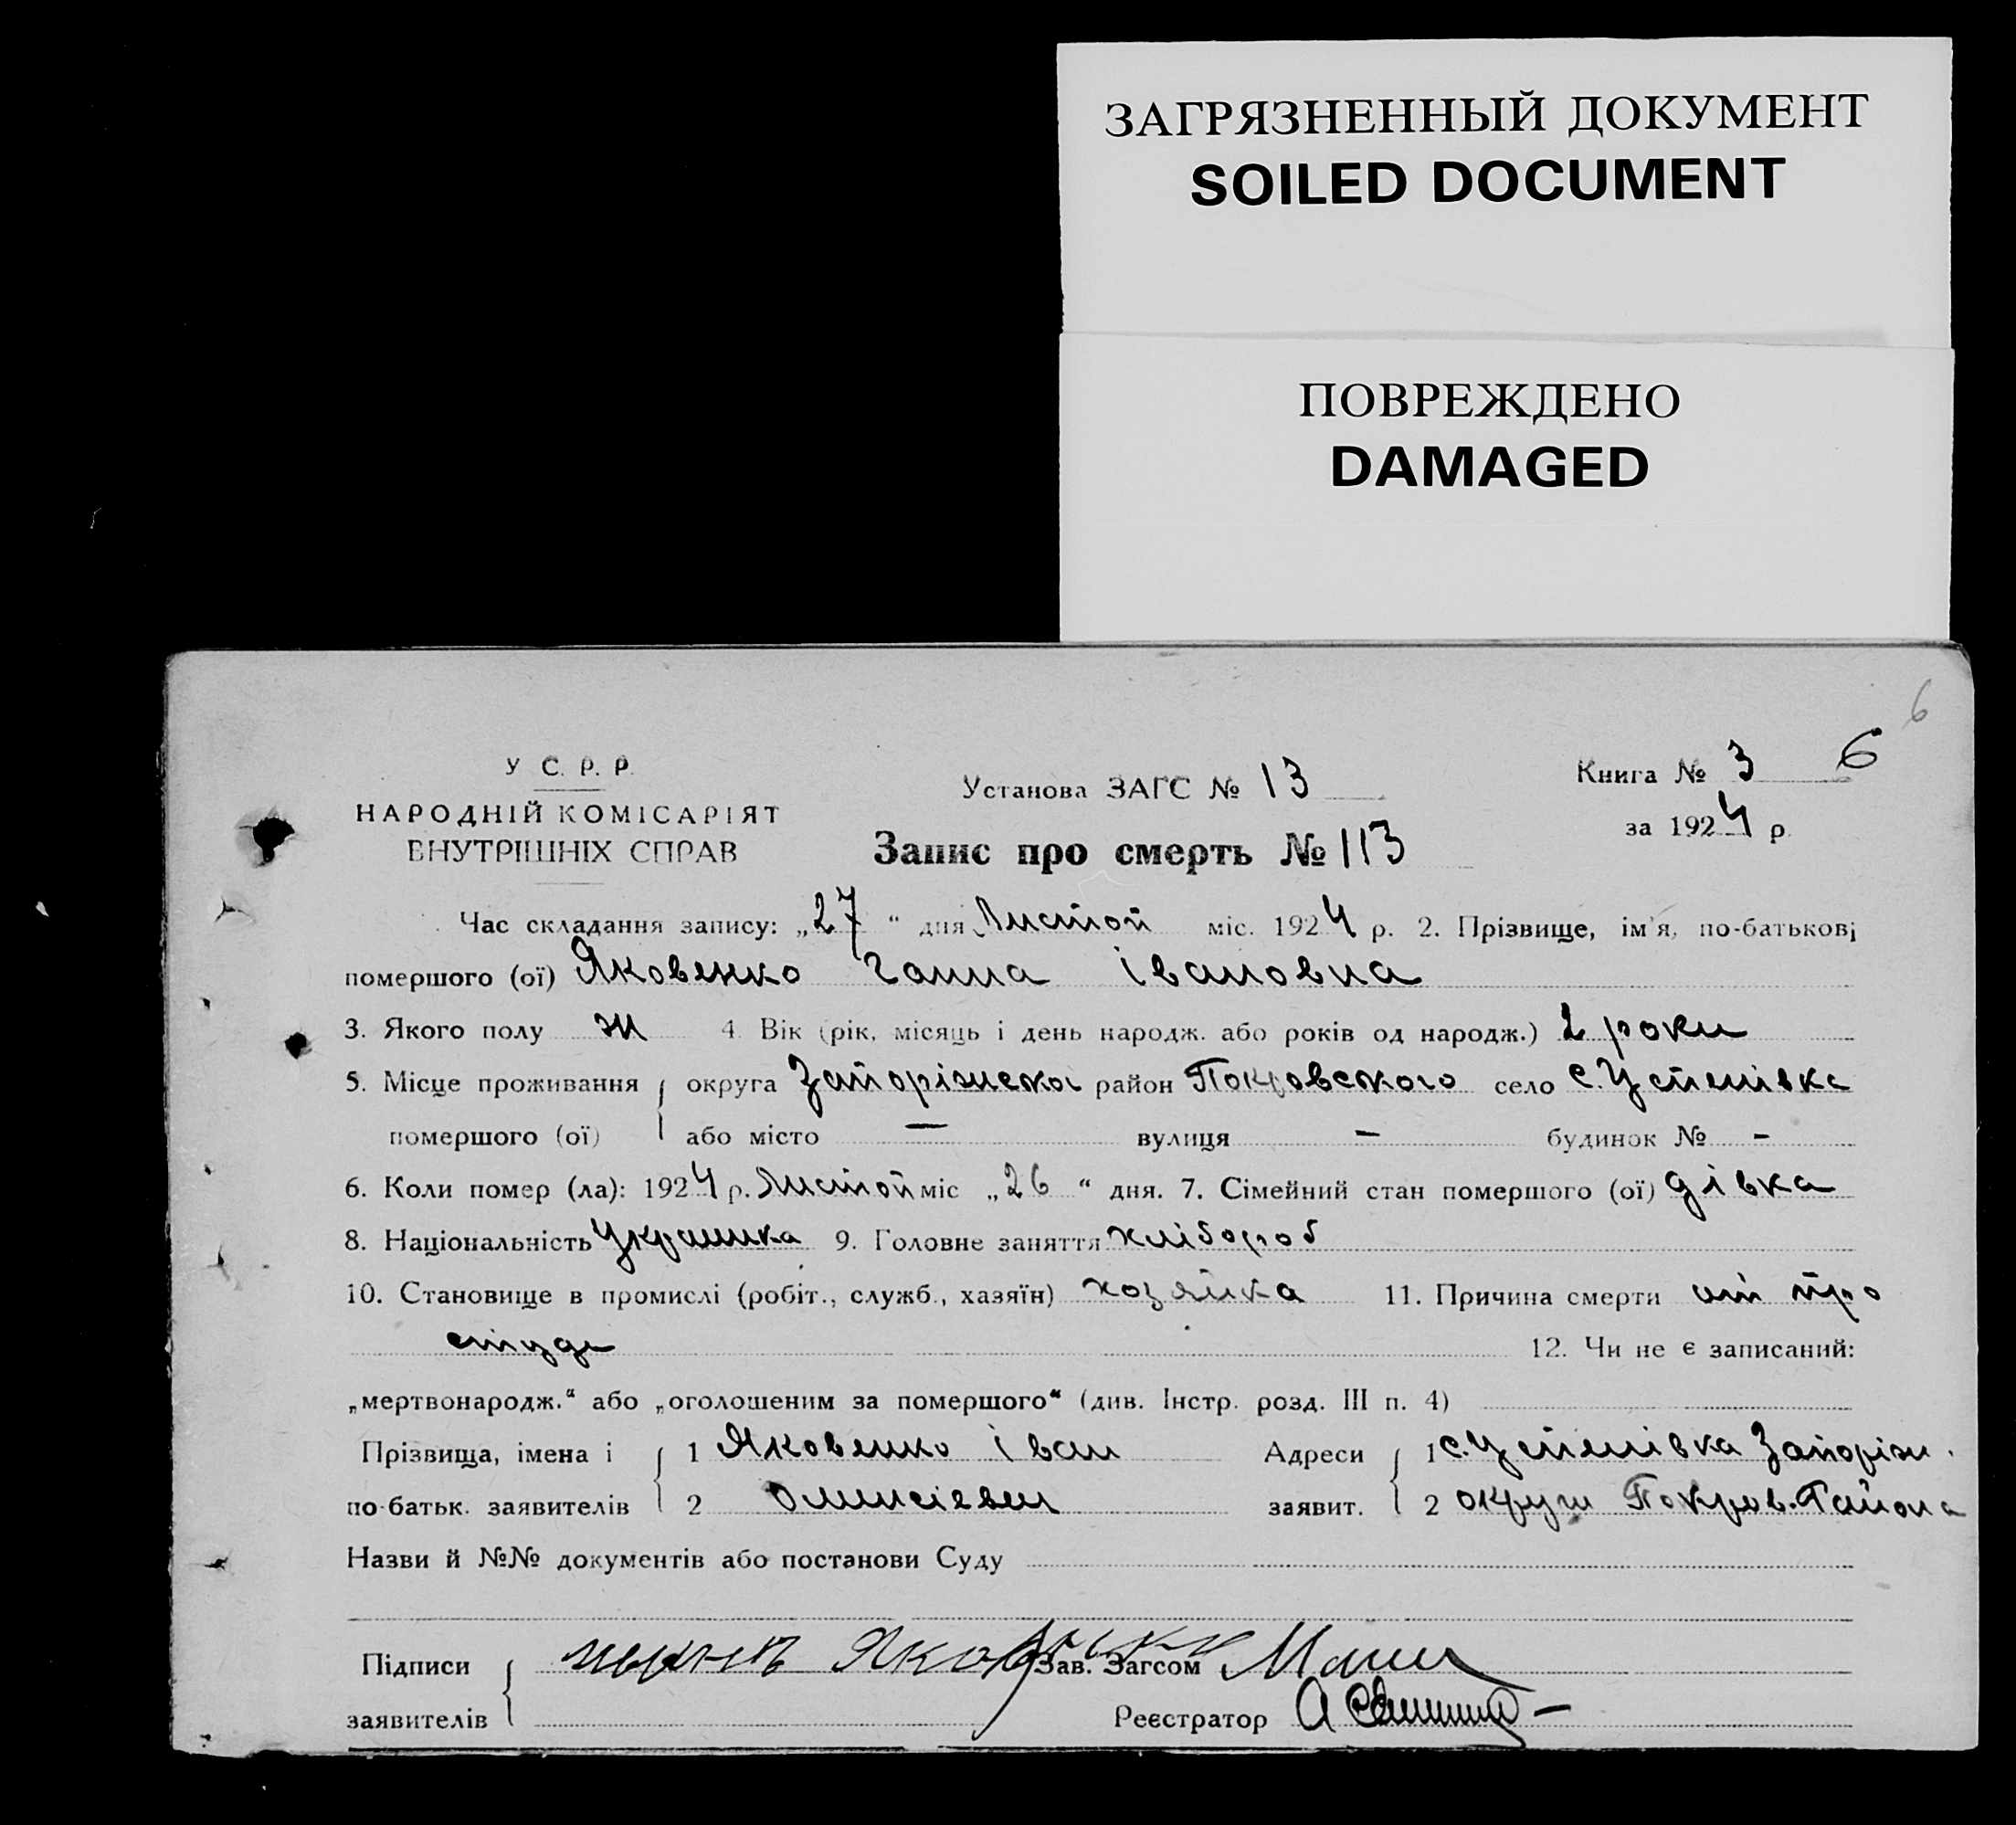 ЗАГРЯЗНЕННЫЙ ДОКУМЕНТ
SOILED DOCUMENT
ПОВРЕЖДЕНО
DAMAGED
6
У С. Р. Р.
НАРОДНІЙ КОМІСАРІЯТ
ВНУТРІШНІХ СПРАВ
Установа ЗАГС № 13
Книга № 3 6
за 1924 р.
Запис про смерть № 113
Час складання запису: „27“ дня Листоп міс. 1924 р. 2. Прізвище, ім'я, по-батькові
помершого (ої) Яковенко Ганна Івановна
3. Якого полу ж 4. Вік (рік, місяць і день народж. або років од народж.) 2 роки
5. Місце проживання округа Запоріжскоі район Покровского село с. Успенівка
помершого (ої) або місто — вулиця — будинок № -
6. Коли помер (ла): 1924 р. Листоп міс „26“ дня. 7. Сімейний стан помершого (ої) дівка
8. Національність Украинка 9. Головне заняття хлібороб
10. Становище в промислі (робіт., служб., хазяїн) хозяйка 11. Причина смерти от про
студи 12. Чи не є записаний:
„мертвонародж.“ або „оголошеним за помершого“ (див. Інстр. розд. III п. 4)
Прізвища, імена і 1 Яковенко Іван Адреси 1 с. Успенівка Запоріж.
по-батьк. заявителів 2 заявит. 2 округи Покров. Района
Назви й №№ документів або постанови Суду
Підписи Зав. Загсом
заявителів Реєстратор А